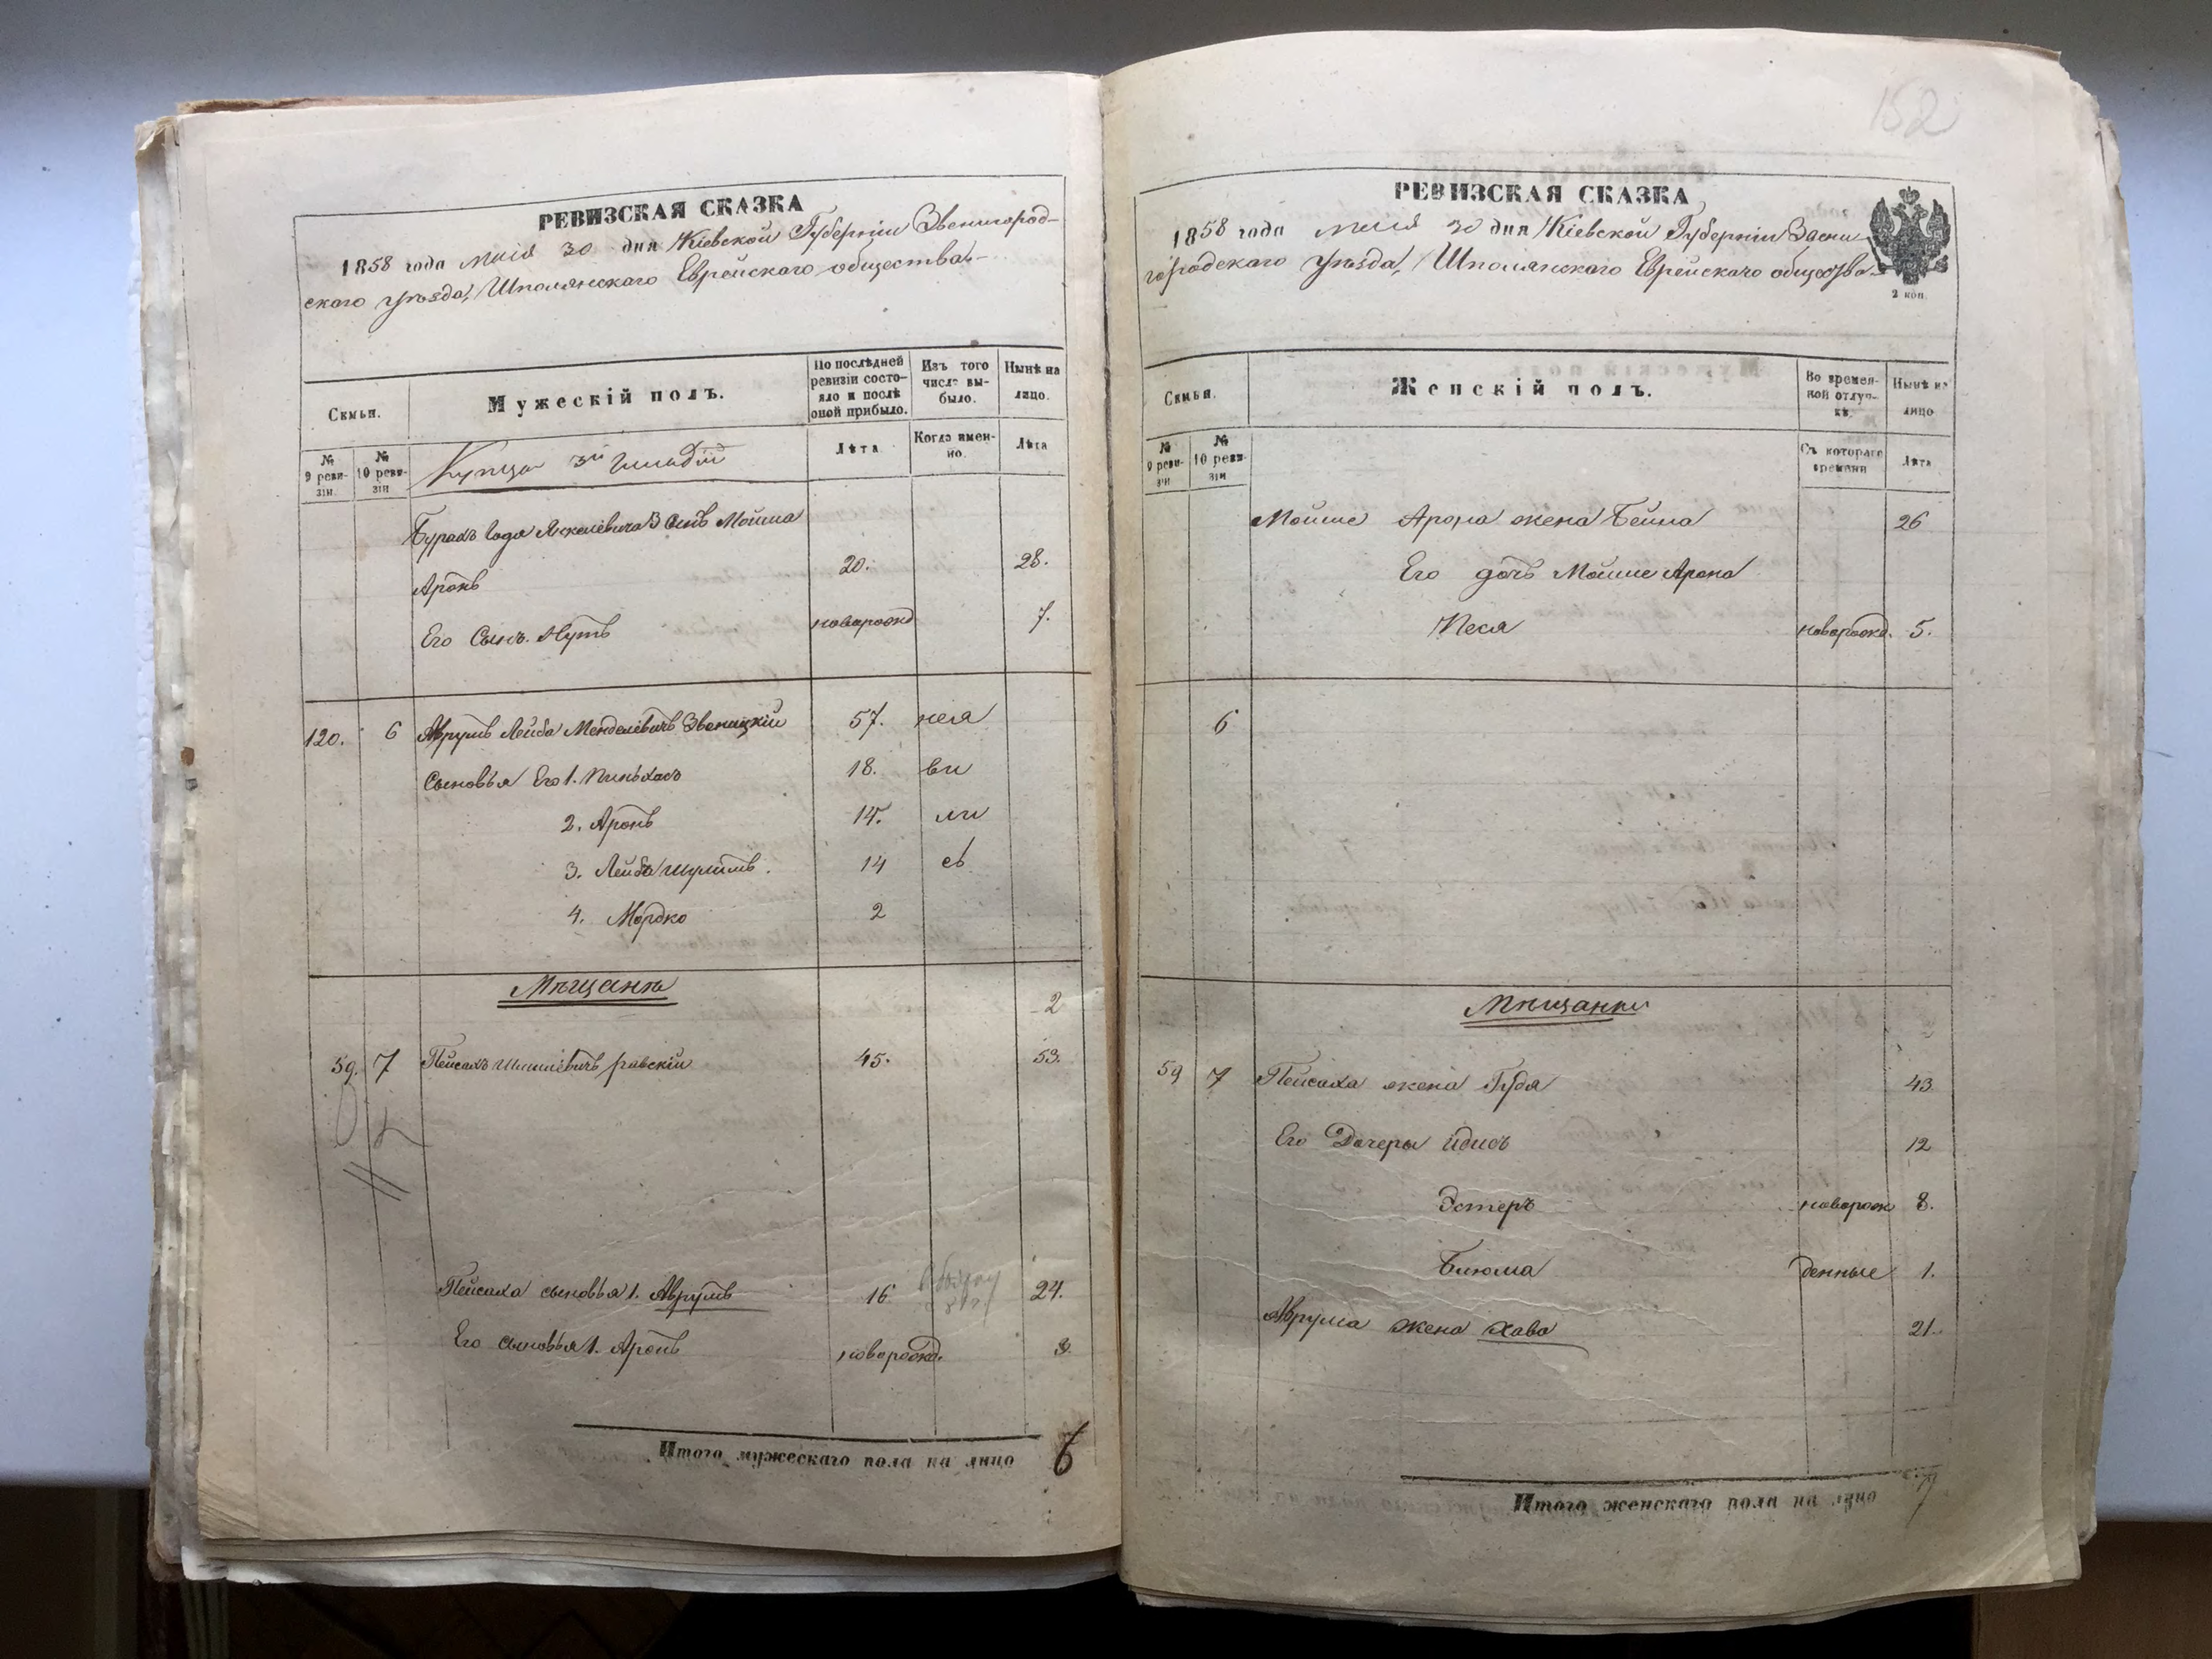 РЕВИЗСКАЯ СКАЗКА
1858 года Маія 30 дня Кіевской Губерніи Звенигород-
скаго уѣзда, Шполянскаго Еврейскаго общества
Семьи.
Мужескій полъ.
По послѣдней ревизіи состояло и послѣ оной прибыло.
Изъ того числа выбыло.
Нынѣ на лицо.
№ 9 ревизіи.
№ 10 ревизіи
Купцы 3й Гильдіи
Лѣта
Когда именно.
Лѣта
Янкелевича 3 Сынъ Мошка
Аронъ 20. 28.
Его Сынъ новорожд 7.
120. 6 Аврумъ Лейба Менделевичъ Звеницкій 57. неяв
Сыновья Его 1. Пинхасъ 18. ви
2. Аронъ 14. ли
3. Лейба 14 сь
4. Мордко 2
Мѣщане
2
59. 7 Пейсахъ равскій 45. 53.
Пейсаха сыновья 1. Аврумъ 16 24.
Его сыновья 1. Аронъ новорожд. 3.
Итого мужескаго пола на лицо 6
152
РЕВИЗСКАЯ СКАЗКА
1858 года Маія 30 дня Кіевской Губерніи Звени-
городскаго уѣзда, Шполянскаго Еврейскаго общества
2 коп.
Семьи.
Женскій полъ.
Во временной отлучкѣ.
Нынѣ на лицо
№ 9 ревизіи
№ 10 ревизіи
Съ котораго времени
Лѣта
Мошке Арона жена Бейла 26
Его дочь Мошке Арона
Песя новорожд. 5.
6
Мѣщанки
2
59 7 Пейсаха жена 43
Его Дочеры Идись 12
Эстеръ новорож 8.
Блюма денные 1.
Аврума жена Хава 21.
Итого женскаго пола на лицо 7